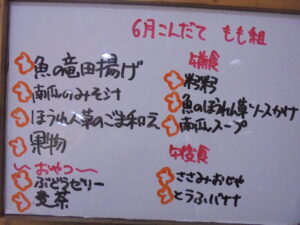 6月こんだて もも組
魚の竜田揚げ
南瓜のみそ汁
ほうれん草のごま和え
果物
〜おやつ〜
ぶどうゼリー
麦茶
午前食
粥
魚のほうれん草ソースかけ
南瓜スープ
午後食
ささみおじや
とうふバナナ